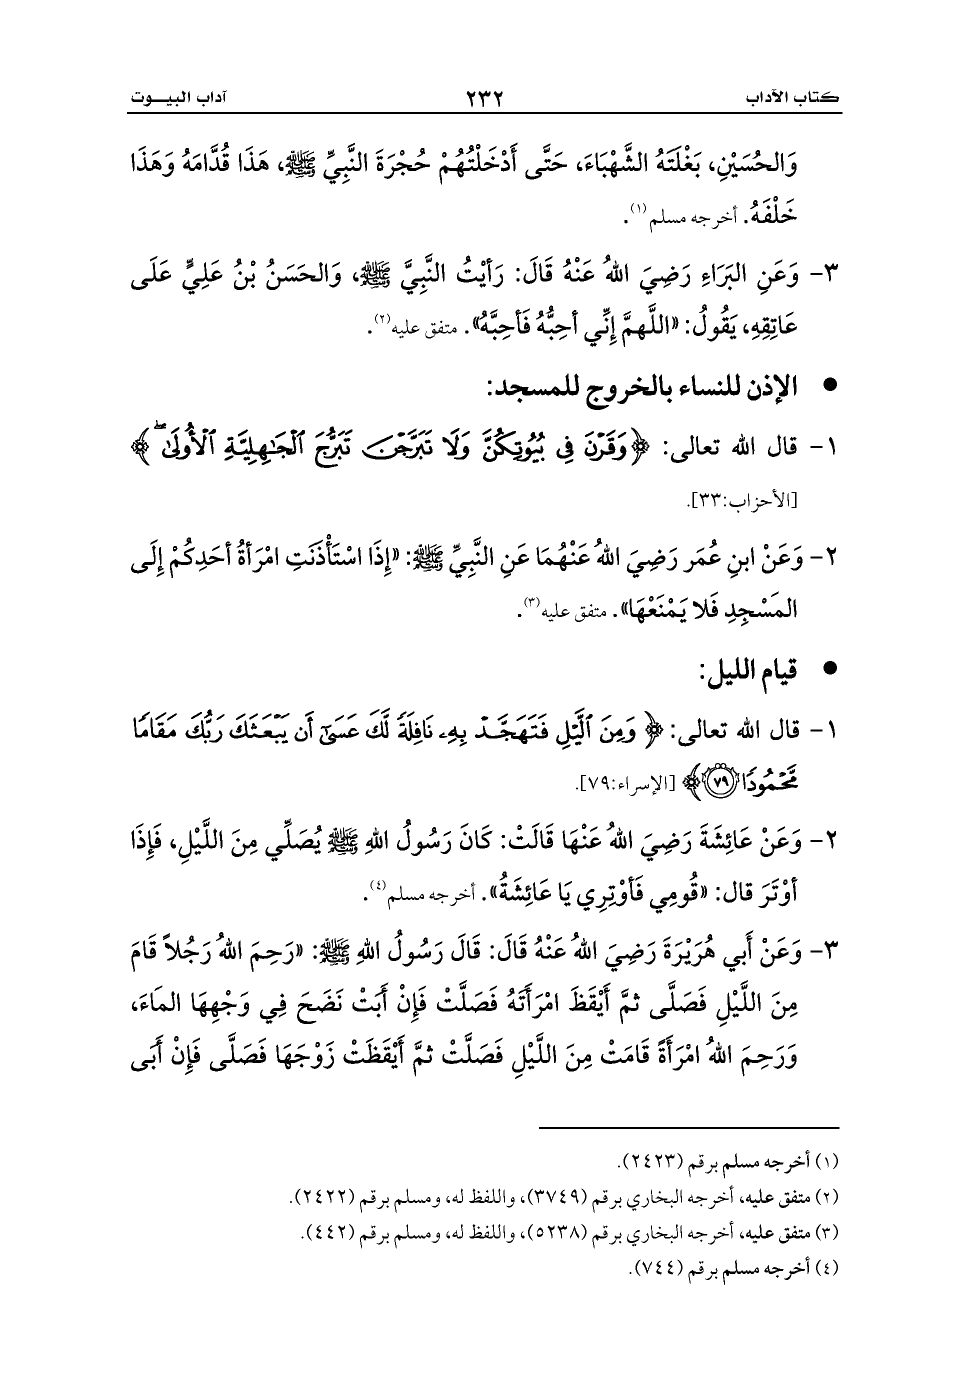 كتاب الآداب ٢٣٢ آداب البيـــوت
وَالحُسَيْنِ، بَغْلَتَهُ الشَّهْبَاءَ، حَتَّى أَدْخَلْتُهُمْ حُجْرَةَ النَّبِيِّ ﷺ، هَذَا قُدَّامَهُ وَهَذَا
خَلْفَهُ. أخرجه مسلم(١).
٣- وَعَنِ البَرَاءِ رَضِيَ اللهُ عَنْهُ قَالَ: رَأيْتُ النَّبِيَّ ﷺ، وَالحَسَنُ بْنُ عَلِيٍّ عَلَى
عَاتِقِهِ، يَقُولُ: «اللَّهمَّ إنِّي أحِبُّهُ فَأحِبَّهُ». متفق عليه(٢).
● الإذن للنساء بالخروج للمسجد:
١- قال الله تعالى: ﴿وَقَرْنَ فِي بُيُوتِكُنَّ وَلَا تَبَرَّجْنَ تَبَرُّجَ ٱلْجَٰهِلِيَّةِ ٱلْأُولَىٰ ۖ ﴾
[الأحزاب:٣٣].
٢- وَعَنْ ابنِ عُمَر رَضِيَ اللهُ عَنْهُمَا عَنِ النَّبِيِّ ﷺ: «إِذَا اسْتَأْذَنَتِ امْرَأةُ أحَدِكُمْ إلَى
المَسْجِدِ فَلا يَمْنَعْهَا». متفق عليه(٣).
● قيام الليل:
١- قال الله تعالى: ﴿وَمِنَ ٱلَّيْلِ فَتَهَجَّدْ بِهِۦ نَافِلَةً لَّكَ عَسَىٰٓ أَن يَبْعَثَكَ رَبُّكَ مَقَامًا
مَّحْمُودًا ٧٩﴾ [الإسراء:٧٩].
٢- وَعَنْ عَائِشَةَ رَضِيَ اللهُ عَنْهَا قَالَتْ: كَانَ رَسُولُ اللهِ ﷺ يُصَلِّي مِنَ اللَّيْلِ، فَإِذَا
أوْتَرَ قال: «قُومِي فَأوْتِرِي يَا عَائِشَةُ». أخرجه مسلم(٤).
٣- وَعَنْ أَبي هُرَيْرَةَ رَضِيَ اللهُ عَنْهُ قَالَ: قَالَ رَسُولُ اللهِ ﷺ: «رَحِمَ اللهُ رَجُلاً قَامَ
مِنَ اللَّيْلِ فَصَلَّى ثمَّ أَيْقَظَ امْرَأَتَهُ فَصَلَّتْ فَإِنْ أَبَتْ نَضَحَ فِي وَجْهِهَا المَاءَ،
وَرَحِمَ اللهُ امْرَأَةً قَامَتْ مِنَ اللَّيْلِ فَصَلَّتْ ثمَّ أَيْقَظَتْ زَوْجَهَا فَصَلَّى فَإِنْ أَبَى
(١) أخرجه مسلم برقم (٢٤٢٣).
(٢) متفق عليه، أخرجه البخاري برقم (٣٧٤٩)، واللفظ له، ومسلم برقم (٢٤٢٢).
(٣) متفق عليه، أخرجه البخاري برقم (٥٢٣٨)، واللفظ له، ومسلم برقم (٤٤٢).
(٤) أخرجه مسلم برقم (٧٤٤).